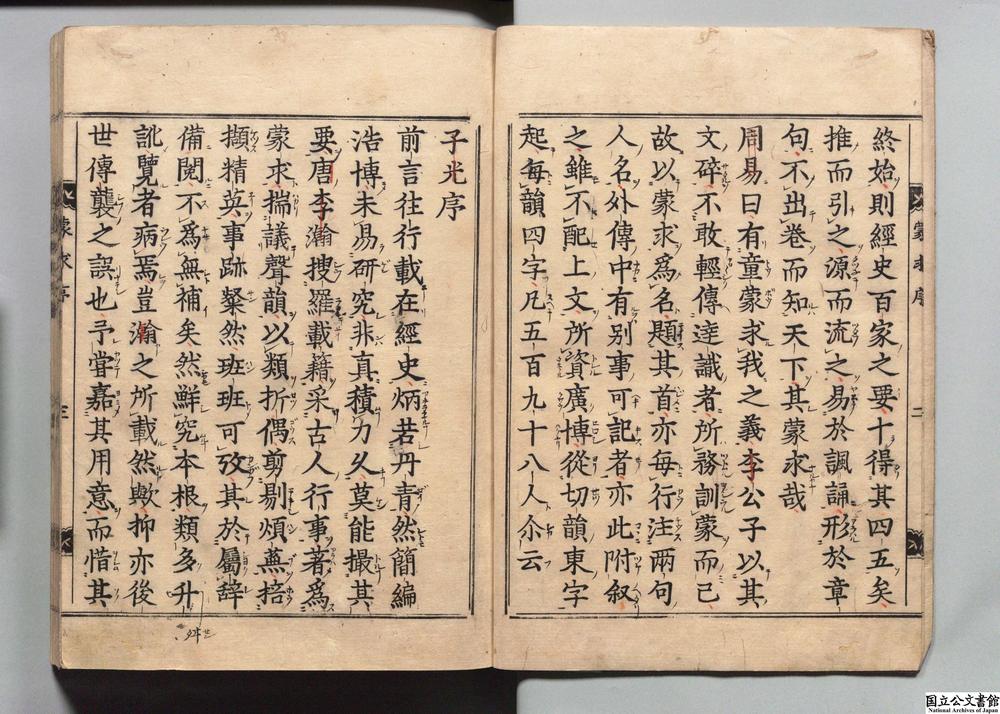 終始則經史百家之要十得其四五矣
推而引之源而流之易於諷誦形於章
句不出卷而知天下其蒙求哉
周易曰有童蒙求我之義李公子以其
文碎不敢輕傳達識者所務訓蒙而已
故以蒙求爲名題其首亦每行注兩句
人名外傳中有别事可記者亦此附叙
之雖不配上文所資廣博從切韻東字
起每韻四字凡五百九十八人尒云
蒙求序
二
子光序
前言往行載在經史炳若丹青然簡編
浩博未易研究非真積力久莫能撮其
要唐李瀚搜羅載籍采古人行事著爲
蒙求揣議聲韻以類折偶剪剔煩蕪掊
擷精英事跡粲然班班可攷其於屬辞
備閱不爲無補矣然鮮究本根類多升
訛覽者病焉豈瀚之所載然歟抑亦後
世傳襲之誤也予嘗嘉其用意而惜其
蒙求序
三
国立公文書館
National Archives of Japan